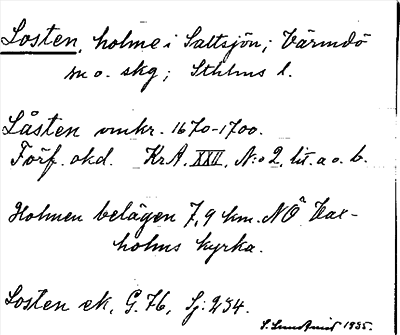 Losten, holme i Saltsjön; Värmdö
m o. skg; Sthlms l.
Låsten omkr. 1670-1700.
Förf. okd. KrA. XXII, N:o 2, lit. a o. b.
Holmen belägen 7,9 km. NÖ Vax-
holms kyrka.
Losten ek, G. 76, Sj: 234.
S. Lundqvist 1935.